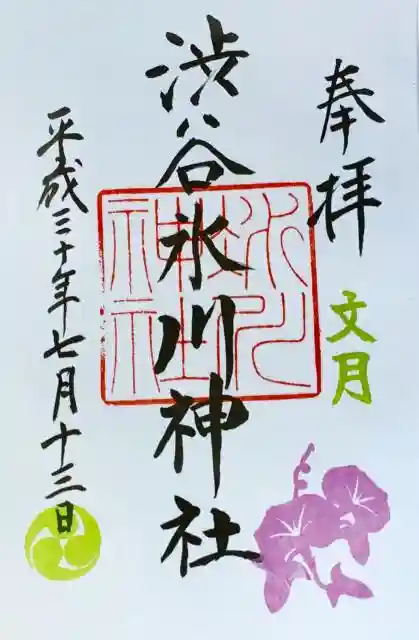 奉拝
文月
渋谷氷川神社
氷川
神社
平成三十年七月十三日